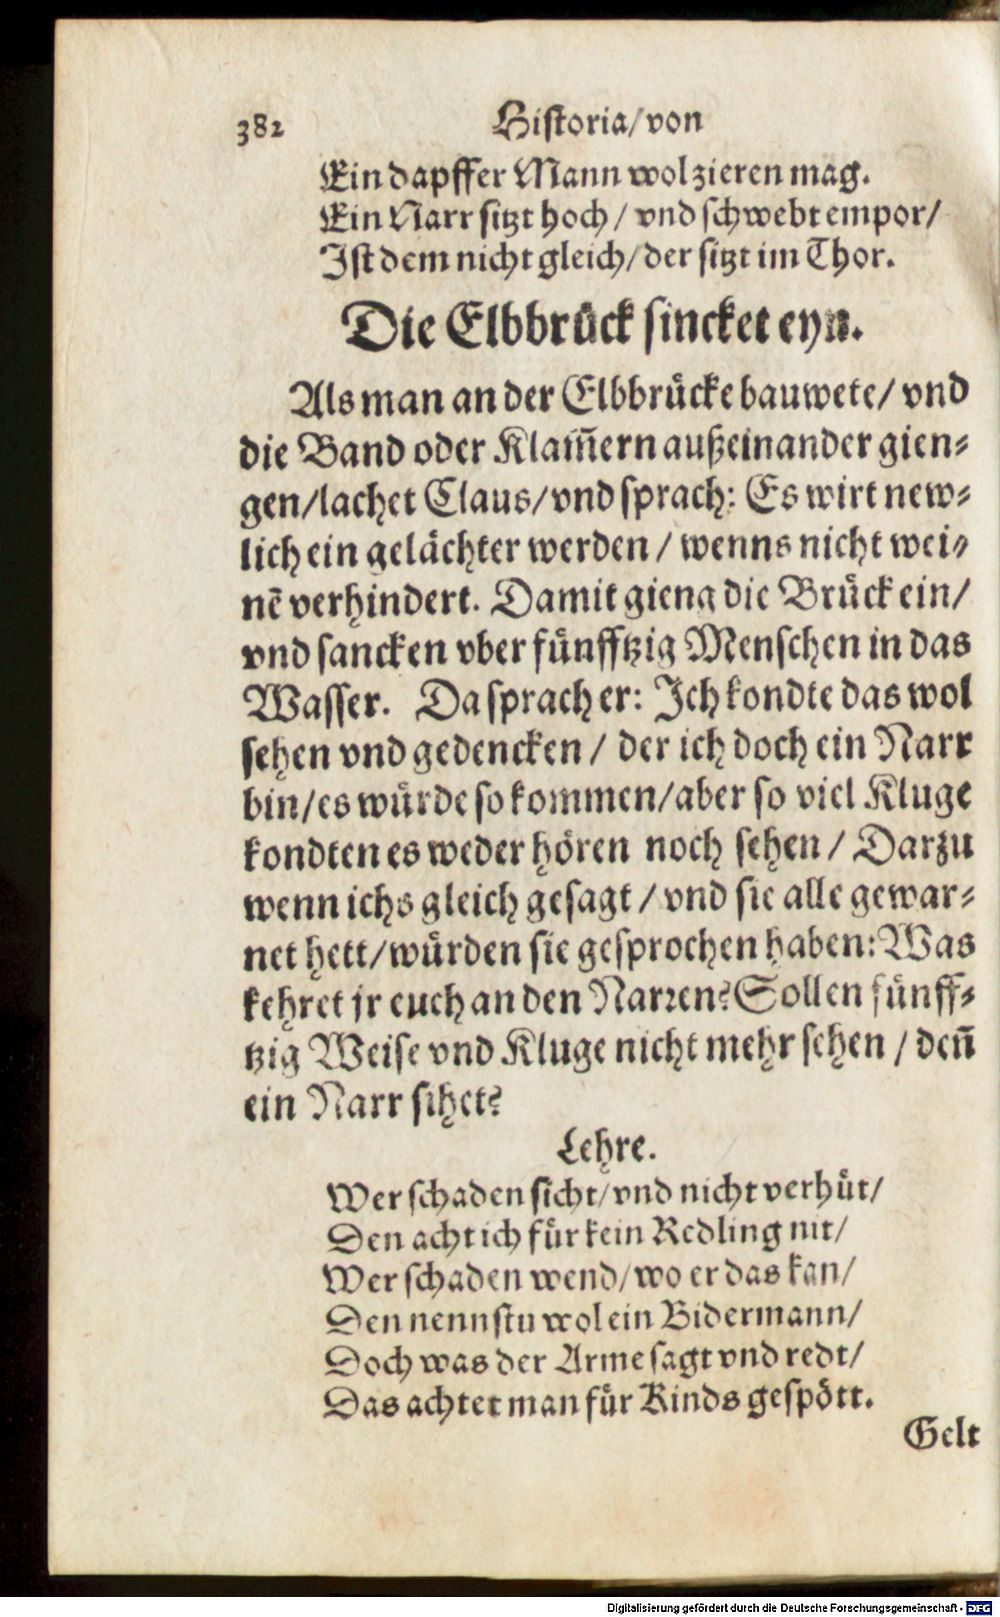 382 Historia/von
Ein dapffer Mann wol zieren mag.
Ein Narr sitzt hoch / vnd schwebt empor/
Ist dem nicht gleich/der sitzt im Thor.
Die Elbbrůck sincket eyn.
Als man an der Elbbrůcke bauwete/ vnd
die Band oder Klam̃ern außeinander gien⸗
gen/lachet Claus/vnd sprach: Es wirt new⸗
lich ein gelåchter werden / wenns nicht wei⸗
nẽ verhindert. Damit gieng die Brůck ein/
vnd sancken vber fůnfftzig Menschen in das
Wasser. Da sprach er: Ich kondte das wol
sehen vnd gedencken / der ich doch ein Narr
bin/es wůrde so kommen/aber so viel Kluge
kondten es weder hőren noch sehen / Darzu
wenn ichs gleich gesagt / vnd sie alle gewar⸗
net hett/wůrden sie gesprochen haben: Was
kehret jr euch an den Narren? Sollen fůnff⸗
tzig Weise vnd Kluge nicht mehr sehen / deñ
ein Narr sihet?
Lehre.
Wer schaden sicht/vnd nicht verhůt/
Den acht ich fůr kein Redling nit/
Wer schaden wend/wo er das kan/
Den nennstu wol ein Bidermann/
Doch was der Arme sagt vnd redt/
Das achtet man fůr Kinds gespőtt.
Gelt
Digitalisierung gefördert durch die Deutsche Forschungsgemeinschaft - DFG